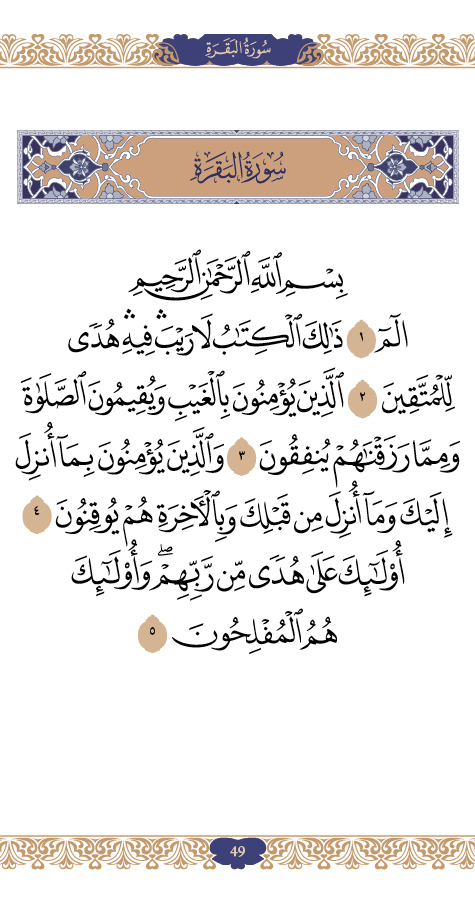 سُورَةُ البَقَرَةِ
سُورَةُ البَقَرَةِ
بِسْمِ ٱللَّهِ ٱلرَّحْمَٰنِ ٱلرَّحِيمِ
الٓمٓ ١ ذَٰلِكَ ٱلْكِتَٰبُ لَا رَيْبَ ۛ فِيهِ ۛ هُدًى
لِّلْمُتَّقِينَ ٢ ٱلَّذِينَ يُؤْمِنُونَ بِٱلْغَيْبِ وَيُقِيمُونَ ٱلصَّلَوٰةَ
وَمِمَّا رَزَقْنَٰهُمْ يُنفِقُونَ ٣ وَٱلَّذِينَ يُؤْمِنُونَ بِمَآ أُنزِلَ
إِلَيْكَ وَمَآ أُنزِلَ مِن قَبْلِكَ وَبِٱلْأَخِرَةِ هُمْ يُوقِنُونَ ٤
أُو۟لَٰٓئِكَ عَلَىٰ هُدًى مِّن رَّبِّهِمْ ۖ وَأُو۟لَٰٓئِكَ
هُمُ ٱلْمُفْلِحُونَ ٥
49